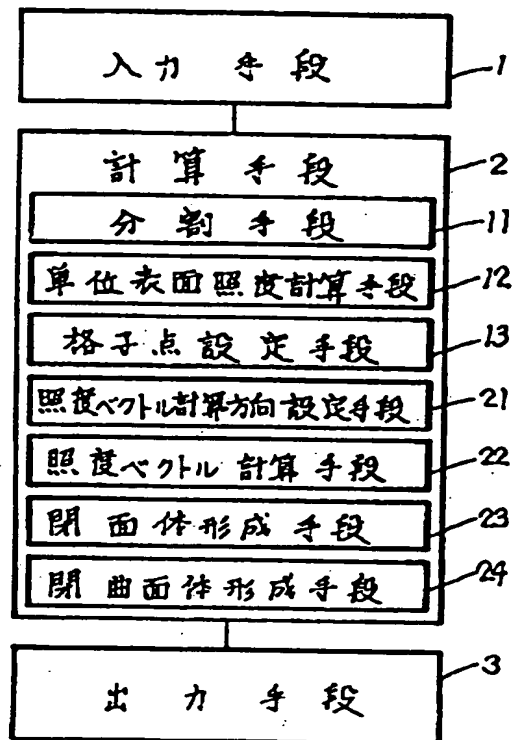 入力手段
1
計算手段
2
分割手段
11
単位表面照度計算手段
12
格子点設定手段
13
照度ベクトル計算方向設定手段
21
照度ベクトル計算手段
22
閉面体形成手段
23
閉曲面体形成手段
24
出力手段
3